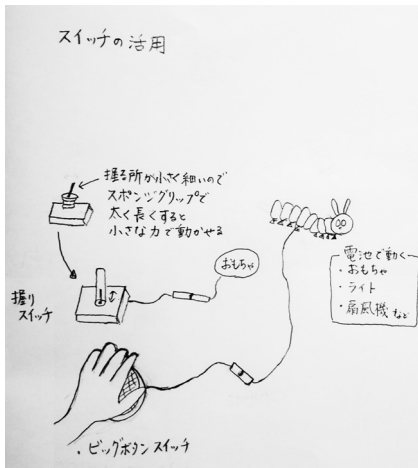 スイッチの活用
握る所が小さく細いので
スポンジグリップで
太く長くすると
小さな力で動かせる
おもちゃ
握り
スイッチ
電池で動く
・おもちゃ
・ライト
・扇風機 など
・ビッグボタンスイッチ